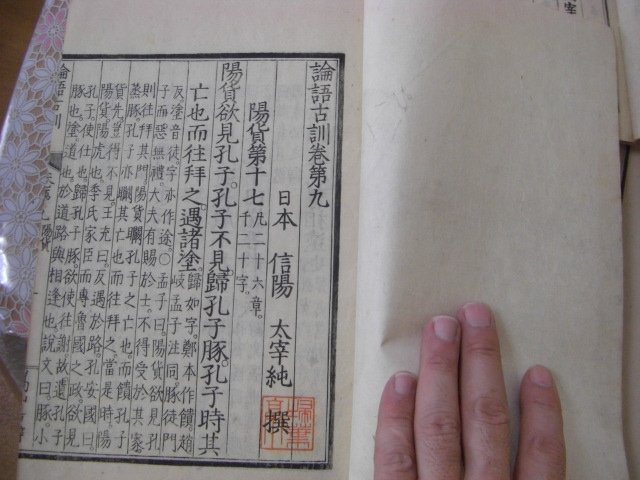 論語古訓卷第九
日本 信陽 太宰純 撰
陽貨第十七 凡二十六章。
千二十字。
陽貨欲見孔子。孔子不見。歸孔子豚。孔子時其
亡也而往拜之。遇諸塗。歸如字。鄭本作饋。趙
岐孟子注同。豚徒門
反。塗音徒。字亦作途。○孟子曰。陽貨欲見孔
子而惡無禮。大夫有賜於士。不得受於其家。
則往拜其門。陽貨矙孔子之亡也。而饋孔子
蒸豚。孔子亦矙其亡也。而往拜之。當是時。陽
貨先。豈得不見。王充曰。反遇於路。孔安國曰。
陽貨陽虎也。季氏家臣而專魯國之政。欲見
孔子使仕也。歸孔子豚。欲使往謝。故遺孔子
豚也。塗道也。於道路與相逢也。說文曰。豚。小
論語古訓
陽貨